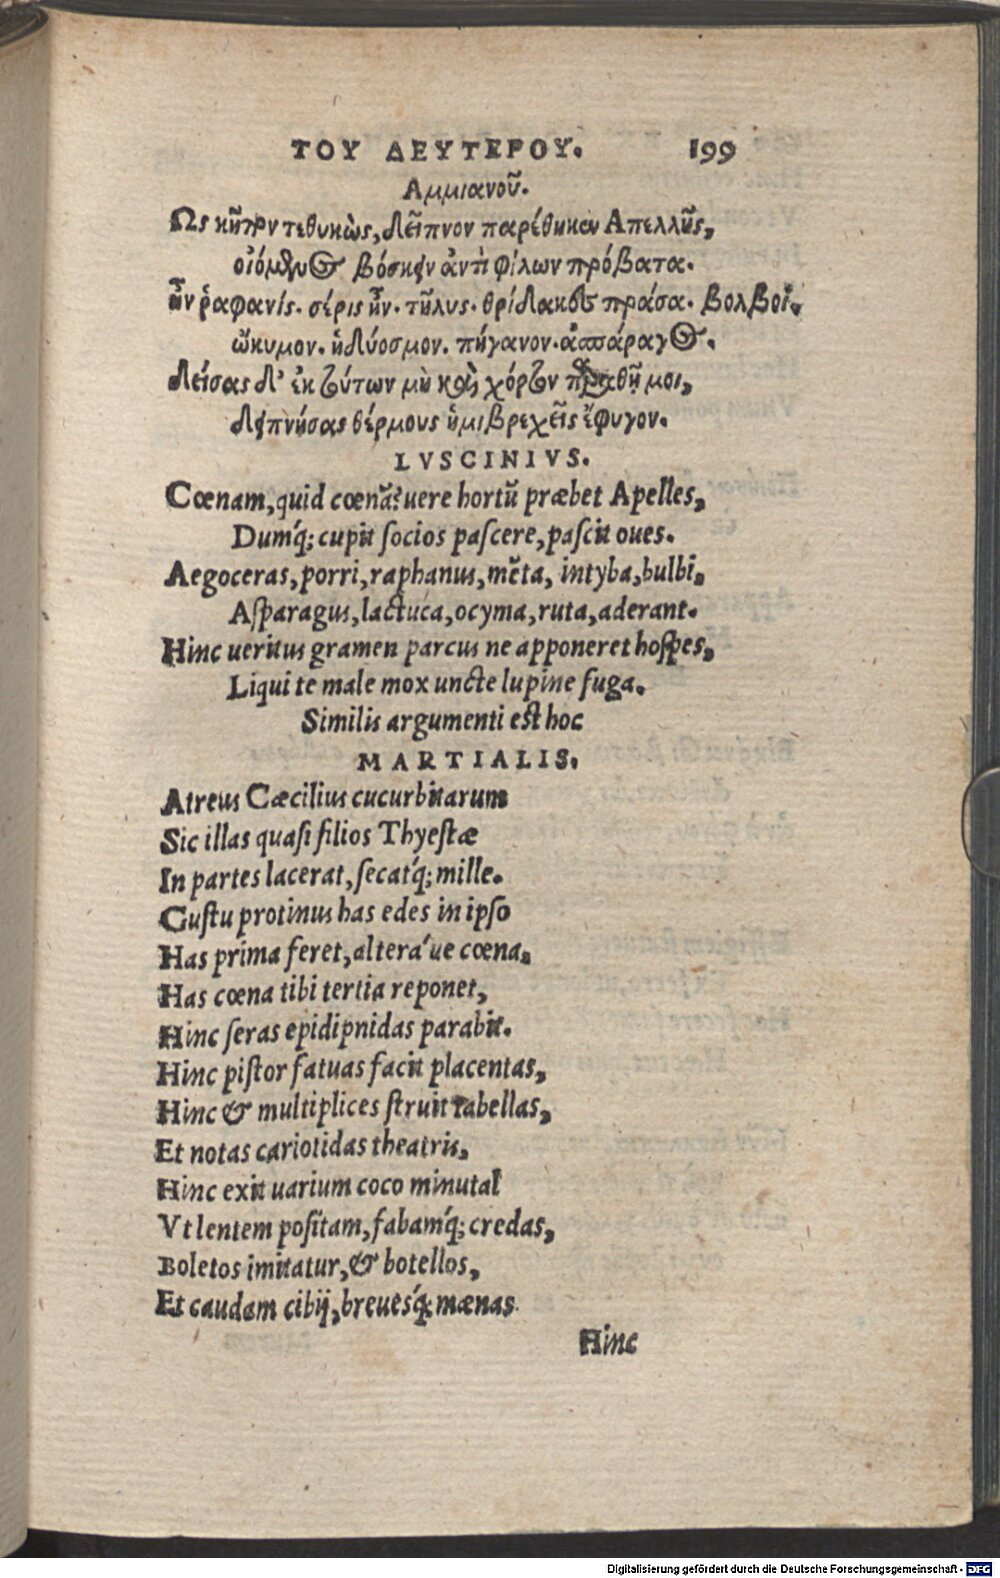 ΤΟΥ ΔΕΥΤΕΡΟΥ. 199
Αμμιανοῦ.
Ως κῆπον τεθυκὼς, δεῖπνον παρέθηκεν Απελλῆς,
οἰόμενος βόσκειν ἀντὶ φίλων πρόβατα.
ἦν ῥαφανίς. σέρις ἦν. τῆλυς. θρίδακες πράσα. βολβοὶ.
ὤκυμον. ἡδύοσμον. πήγανον. ἀσπάραγος.
δείσας δ' ἐκ τούτων μὴ καὶ χόρτον παραθῇ μοι,
δειπνήσας θέρμους ἡμιβρεχεῖς ἔφυγον.
LVSCINIVS.
Cœnam, quid cœnā? uere hortū præbet Apelles,
Dumq́; cupit ſocios paſcere, paſcit oues.
Aegoceras, porri, raphanus, mēta, intyba, bulbi.
Aſparagus, lactuca, ocyma, ruta, aderant.
Hinc ueritus gramen parcus ne apponeret hoſpes,
Liqui te male mox uncte lupine fuga.
Similis argumenti eſt hoc
MARTIALIS.
Atreus Cæcilius cucurbitarum
Sic illas quaſi filios Thyeſtæ
In partes lacerat, ſecatq́; mille.
Guſtu protinus has edes in ipſo
Has prima feret, altera ́ue cœna.
Has cœna tibi tertia reponet,
Hinc ſeras epidipnidas parabit.
Hinc piſtor fatuas facit placentas,
Hinc & multiplices ſtruit tabellas,
Et notas cariotidas theatris,
Hinc exit uarium coco minutal
Vt lentem poſitam, fabamq́; credas,
Boletos imitatur, & botellos,
Et caudam cibij, breuesq́; mænas.
Hinc
Digitalisierung gefördert durch die Deutsche Forschungsgemeinschaft - DFG